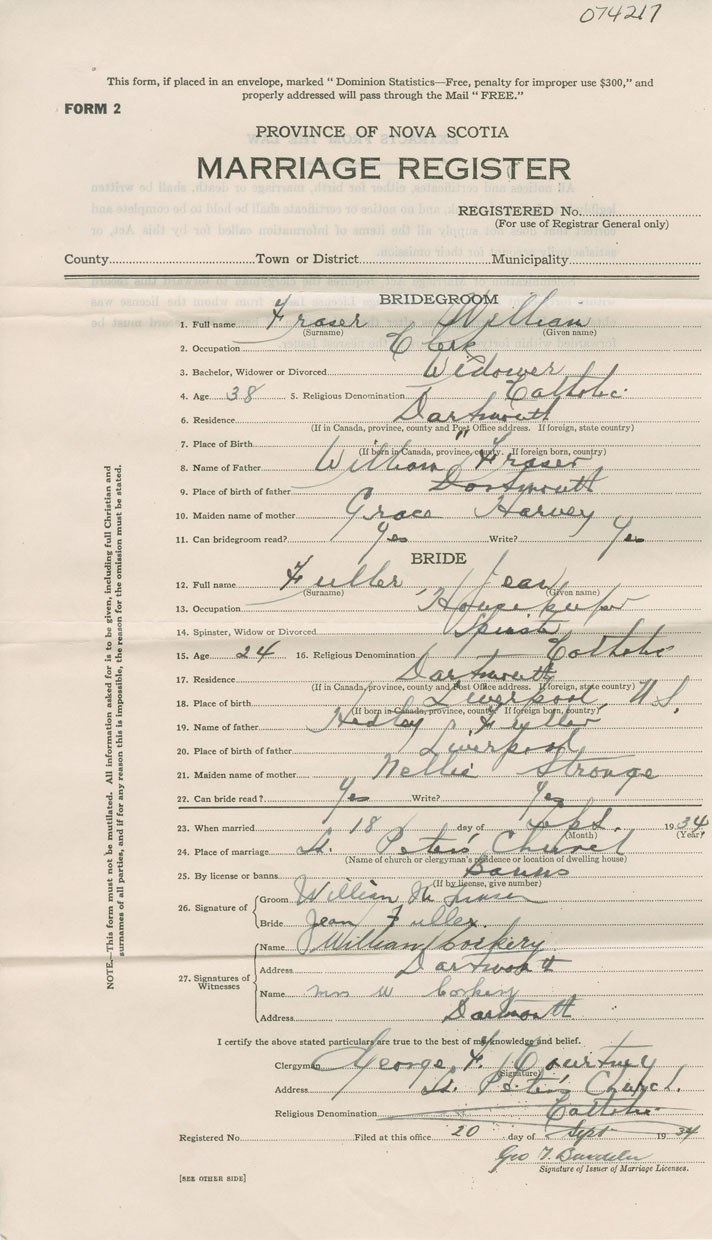 074217
This form, if placed in an envelope, marked “ Dominion Statistics—Free, penalty for improper use $300,” and
properly addressed will pass through the Mail “ FREE.”
FORM 2
PROVINCE OF NOVA SCOTIA
MARRIAGE REGISTER
REGISTERED No.
(For use of Registrar General only)
County Town or District Municipality
BRIDEGROOM
1. Full name Fraser William
(Surname) (Given name)
2. Occupation Clerk
3. Bachelor, Widower or Divorced Widower
4. Age 38 5. Religious Denomination Catholic
6. Residence Dartmouth
(If in Canada, province, county and Post Office address. If foreign, state country)
7. Place of Birth "
(If born in Canada, province, county. If foreign born, county)
8. Name of Father William Fraser
9. Place of birth of father Dartmouth
10. Maiden name of mother Grace Harvey
11. Can bridegroom read? Yes Write? Yes
BRIDE
12. Full name Fuller Jean
(Surname) (Given name)
13. Occupation Housekeeper
14. Spinster, Widow or Divorced Spinster
15. Age 24 16. Religious Denomination Catholic
17. Residence Dartmouth
(If in Canada, province, county and Post Office address. If foreign, state country)
18. Place of birth Liverpool, N.S.
(If born in Canada, province, county. If foreign born, country)
19. Name of father Hedley Fuller
20. Place of birth of father Liverpool
21. Maiden name of mother Nellie Stronge
22. Can bride read? Yes Write? Yes
23. When married 18 day of Sept. 1934
(Month) (Year)
24. Place of marriage St. Peter's Church
(Name of church or clergyman's residence or location of dwelling house)
25. By license or banns Banns
(If by license, give number)
26. Signature of Groom William M. Fraser
Bride Jean Fuller
27. Signatures of Witnesses Name William Corkery
Address Dartmouth
Name Mrs W Corkery
Address Dartmouth
I certify the above stated particulars are true to the best of my knowledge and belief.
Clergyman George F. Courtney
(Signature)
Address St. Peter's Church.
Religious Denomination Catholic
Registered No. Filed at this office 20 day of Sept 1934
Geo T.
Signature of Issuer of Marriage Licenses.
[SEE OTHER SIDE]
NOTE.—This form must not be mutilated. All information asked for is to be given, including full Christian and
surnames of all parties, and if for any reason this is impossible, the reason for the omission must be stated.